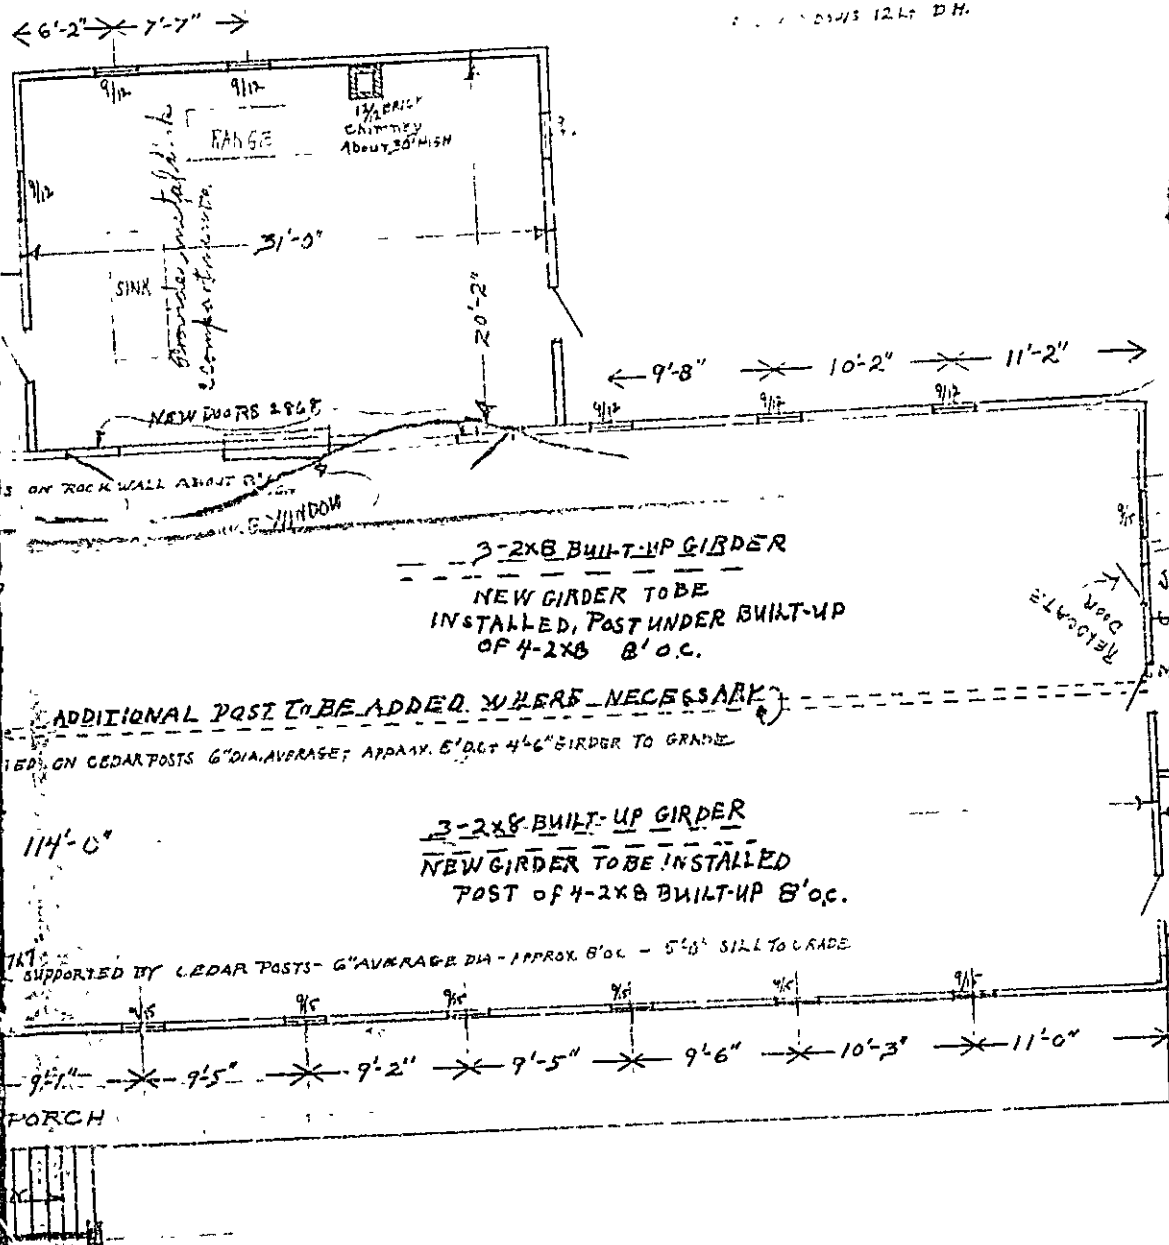 6'-2" 7'-7"
12 LT D.H.
9/12 9/12
RANGE
BRICK
Chimney
About 30' HIGH
9/12
Provide metal sink
2 compartments
31'-0"
SINK
20'-2"
9'-8" 10'-2" 11'-2"
NEW DOORS 2868
9/12 9/12 9/12
ON ROCK WALL ABOUT
WINDOW
9/15
3-2X8 BUILT-UP GIRDER
NEW GIRDER TO BE
INSTALLED, POST UNDER BUILT-UP
OF 4-2X8 8' O.C.
RELOCATE
DOOR
ADDITIONAL POST TO BE ADDED WHERE NECESSARY
ON CEDAR POSTS 6" DIA. AVERAGE; APPROX. 8' O.C. & 4'-6" GIRDER TO GRADE
114'-0"
3-2X8 BUILT-UP GIRDER
NEW GIRDER TO BE INSTALLED
POST OF 4-2X8 BUILT-UP 8' O.C.
SUPPORTED BY CEDAR POSTS - 6" AVERAGE DIA - APPROX 8' OC - 5'-8" SILL TO GRADE
9/15 9/15 9/15 9/15 9/15 9/15
9'-1" 9'-5" 9'-2" 9'-5" 9'-6" 10'-3" 11'-0"
PORCH